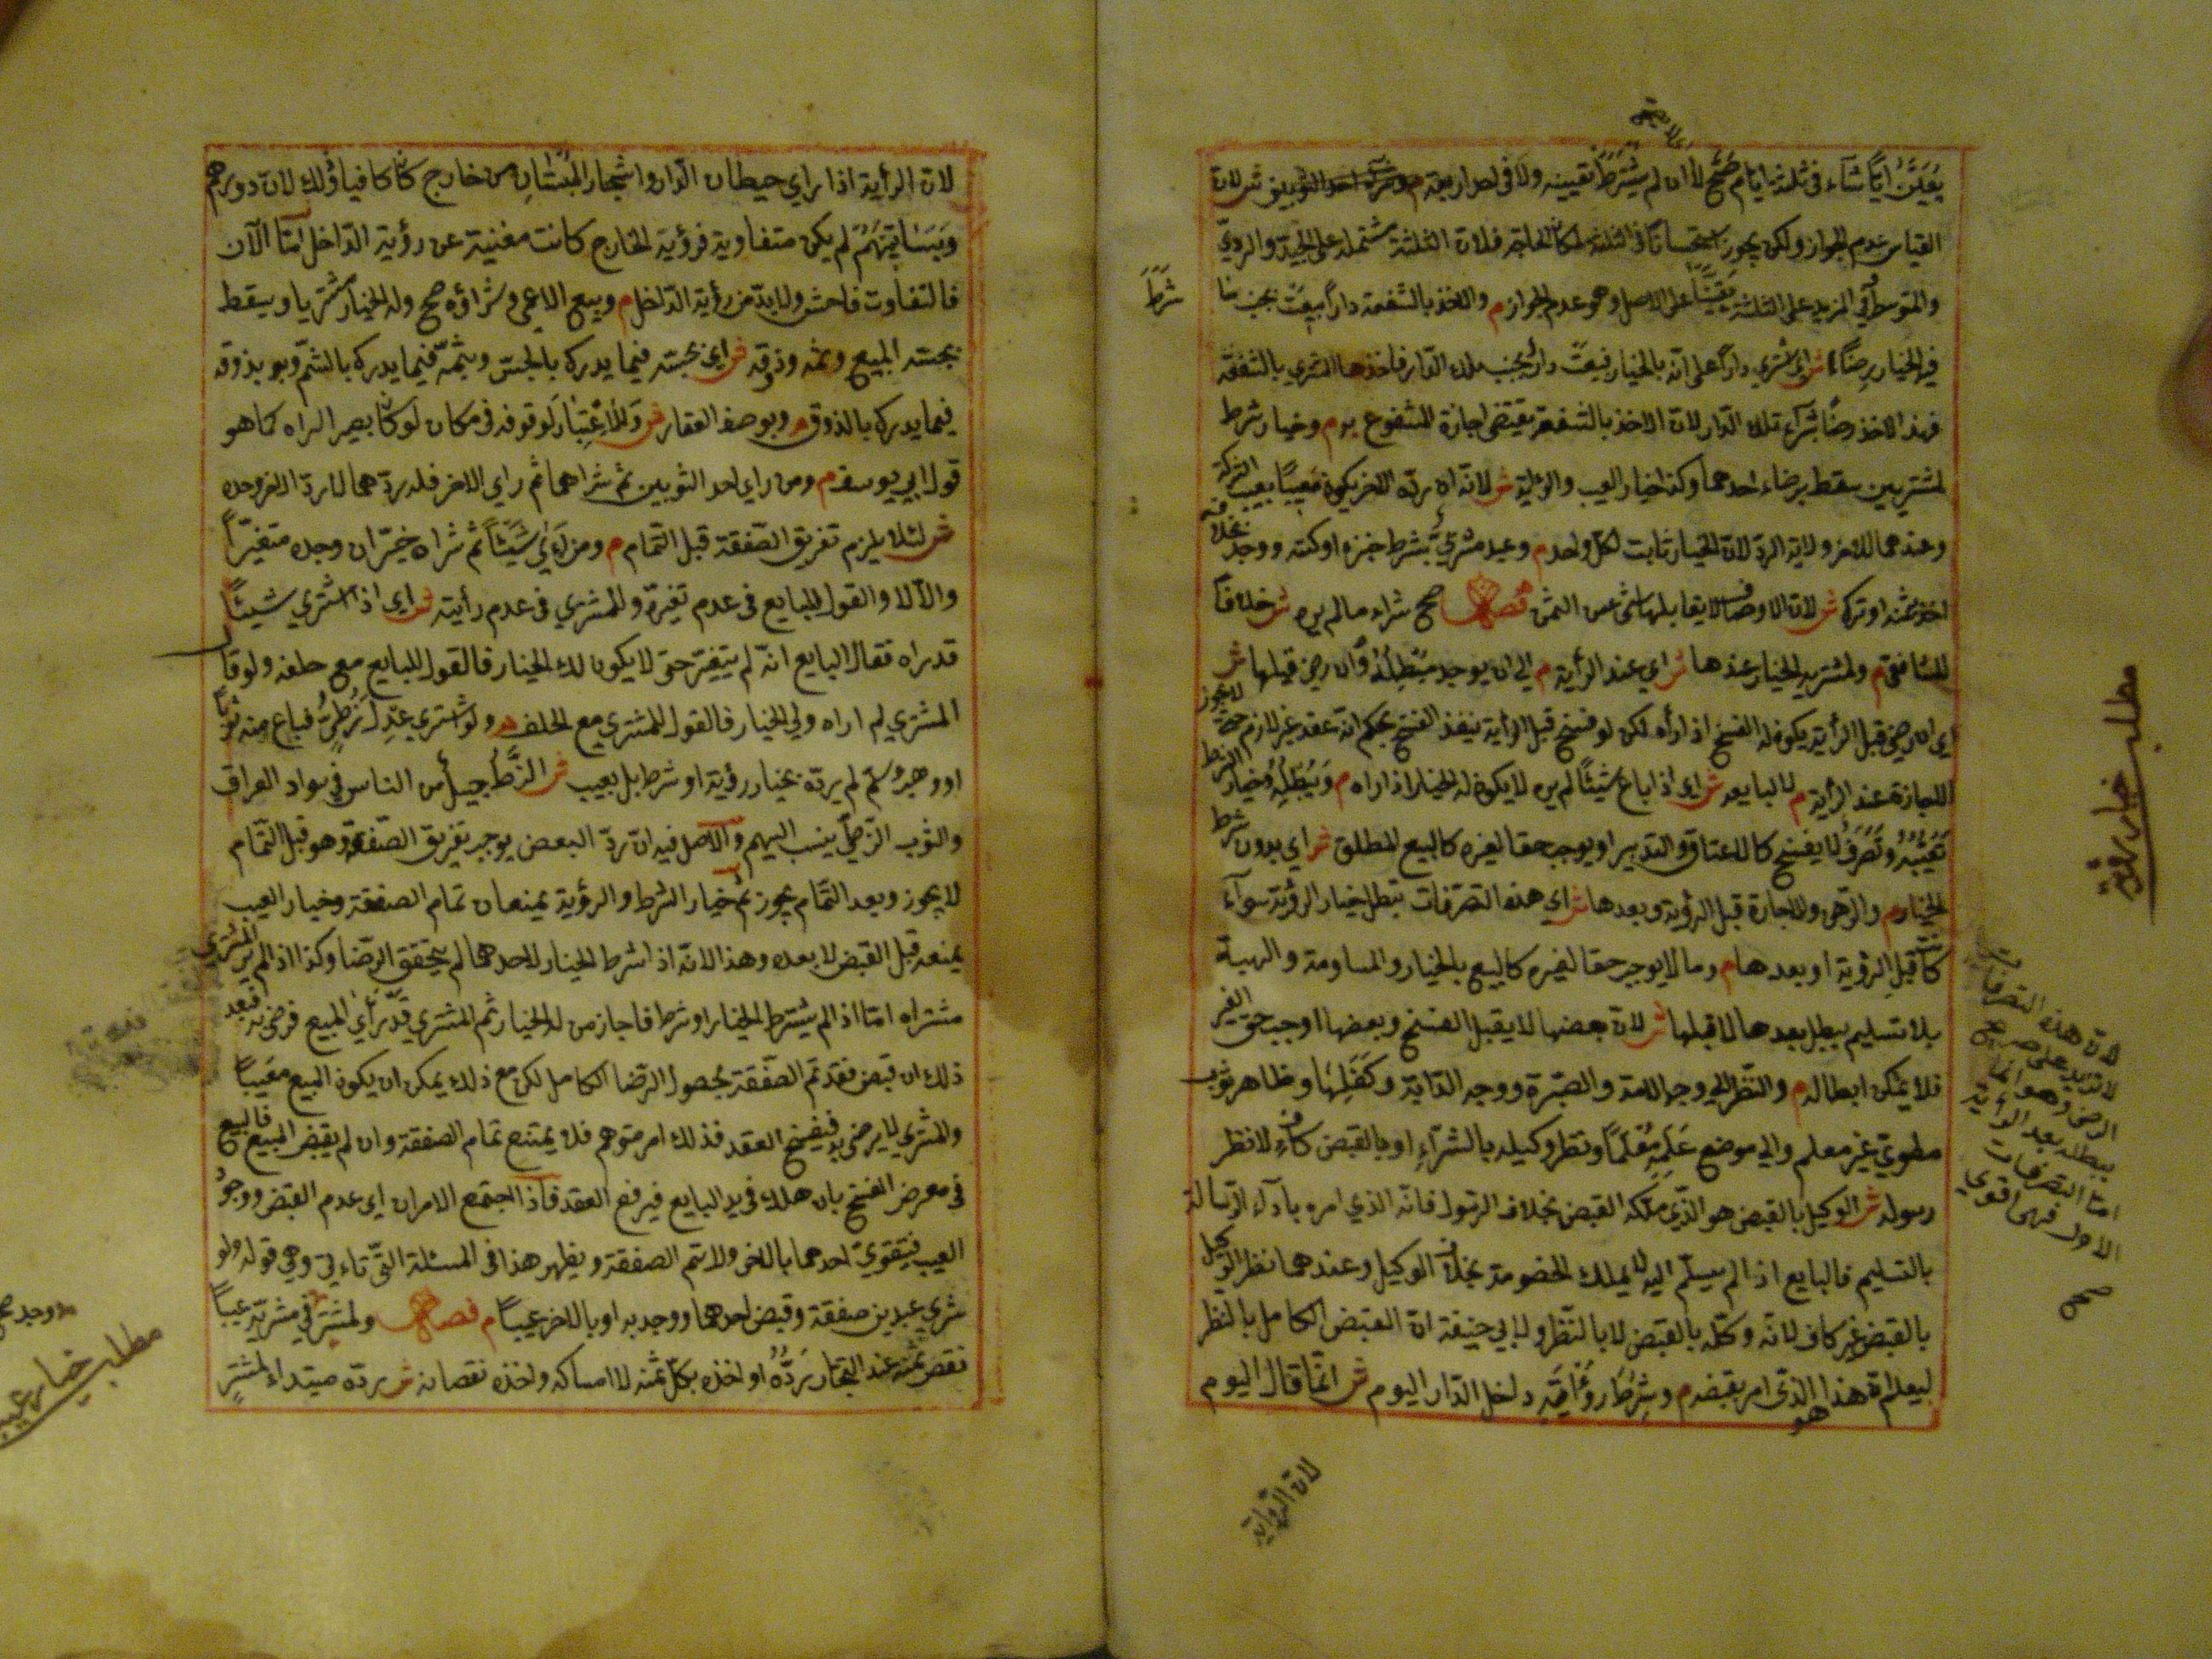 يعيّن ايًّا شاء في ثلثة ايام صحّ لا ان لم يشترط تعيينه ولا في احد اربعة م ش لان
القياس عدم الجواز ولكن يجوز استحسانا في الثلثة لمكان الحاجة فلان الثلثة مشتملة على الجيد والردي
والمتوسط في المزيد على الثلثة على الاصل وهو عدم الجواز م والاخذ بالشفعة دارا بيعت بجنب ما
شرط
فيه الخيار رضًا ش اي اشتري دارا على انه بالخيار فبيعت دار بجنب ملك الدار فاخذها المشتري بالشفعة
فهذا الاخذ رضًا بشراء تلك الدار لان الاخذ بالشفعة يقتضى اجازة للشفوع به م وخيار شرط
لمشتريين سقط برضاء احدهما وكذا خيار العيب والرؤية ش لانه ان ردّه الاخر يكون معيبًا بعيب الشركة
وعندهما للاخر ولاية الرد لان الخيار ثابت لكل واحد م وعبد مشري بشرط خبزه او كتبه ووجد بخلافه
اخذ بثمنه او ترك ش لان الاوصاف لا يقابلها شئ من الثمن فصل صح شراء ما لم يره ش خلافا
للشافعي م ولمشتريه الخيار عندها ش اي عند الرأية م الي ان يوجد مبطله وان رضي قبلها ش
اي ان رضي قبل الرأية يكون له الفسخ اذا رأه لكن لو فسخ قبل الرأية ينفذ الفسخ بحكم انه عقد غير لازم حتى لا يجوز
الاجازة عند الرأية م لا لبايعه ش اي اذا باع شيئًا لم يره لا يكون له الخيار اذا راه م ويبطله وخيار الشرط
تعيّبه وتصرّف لا يفسخ كالاعتاق والتدبير او يوجب حقا لغيره كالبيع المطلق ش اي بدون شرط
الخيار م والرهن والاجارة قبل الرؤية وبعدها ش اي هذه التصرفات يبطل خيار الرؤية سوآء
كانت قبل الرؤية او بعدها م وما لا يوجب حقا لغيره كالبيع بالخيار والمساومة والهبة
بلا تسليم يبطل بعدها لا قبلها ش لان بعضها لا يقبل الفسخ وبعضها اوجب حق الغير
فلا يمكن ابطاله م والنظر الي وجه الامة والصبرة ووجه الدّابة وكفلها وظاهر ثوب
مطوي غير معلم والي موضع علمه معلمًا ونظر وكيله بالشرآء او بالقبض كاف لا نظر
رسوله ش الوكيل بالقبض هو الذي ملّكه القبض بخلاف الرسول فانه الذي امره باداء الرسالة
بالتسليم فالبايع اذا لم يسلّم اليه لا يملك الخصومة بخلاف الوكيل وعندهما نظر الوكيل
بالقبض غير كاف لانه وكّله بالقبض لا بالنظر ولابي حنيفة ان القبض الكامل بالنظر
ليعلم ان هذا هو الذى امر بقبضه م وشرط رؤية داخل الدار اليوم ش انما قال اليوم
مطلب خيار رؤية
لان هذه التصرفات
لا تزيد على صريح
الرضى وهو انما
يبطله بعد الرأية
امّا التصرفات
الاول فهى اقوي
صح
لان الرواية
لان الرأية اذا راي حيطان الدار واشجار البستان من خارج كان كافيا وذلك لان دورهم
وبساتينهم لم يكن متفاوية فرؤية الخارج كانت مغنية عن رؤية الداخل امّا الآن
فالتفاوت فاحش ولا بد من رأية الداخل م وبيع الاعمى وشراؤه صح وله الخيار مشتريا ويسقط
بجسّه المبيع وشمه وذوقه ش اي بجسّه فيما يدرك بالجسّ وبشمّه فيما يدرك بالشمّ وبوبذوقه
فيما يدرك بالذوق م وبوصف العقار ش ولا اعتبار لوقوفه في مكان لو كان بصيرا لراه كما هو
قول ابي يوسف م ومن راي احد الثوبين ثم شراهما ثم راي الاخر فله ردهما لا رد الاخر وحده
ش لئلا يلزم تفريق الصفقة قبل التمام م ومن راي شيئًا ثم شراه خيّر ان وجده متغيّرًا
والا لا والقول للبايع في عدم تغيره وللمشتري في عدم رأيته ش اي اذا اشتري شيئًا
قد راه فقال البايع انه لم يتغير حتى لا يكون لك الخيار فالقول للبايع مع حلفه ولو قال
المشتري لم اراه ولي الخيار فالقول للمشتري مع الحلف م ولو اشتري عدل زطي فباع منه ثوبًا
او وهب وسلّم لم يردّه بخيار رؤية او شرط بل بعيب ش الزّطّ جيل من الناس في سواد العراق
والثوب الزطيّ ينسب اليهم والاصل فيه ان ردّ البعض يوجب تفريق الصفقة وهو قبل التمام
لا يجوز وبعد التمام يجوز ثم خيار الشرط والرؤية يمنعان تمام الصفقة وخيار العيب
يمنعه قبل القبض لا بعده وهذا لانه اذا شرط الخيار لاحدهما لم يتحقق الرضا وكذا اذا لم ير المشتري
مشتراه امّا اذا لم يشترط الخيار او شرط فاجاز من له الخيار ثم المشتري قد رأي المبيع فرضى به فبعد
ذلك ان قبض فقد تم الصفقة بحصول الرضا الكامل لكن مع ذلك يمكن ان يكون المبيع معيبًا
والمشتري لا يرضى به فيفسخ العقد فذلك امر متوهم فلا يمتنع تمام الصفقة وان لم يقبض المبيع فالبيع
في معرض الفسخ بان هلك في يد البايع فيرفع العقد فاذا اجتمع الامران اي عدم القبض ووجود
العيب فيتقوي احدهما بالاخر ولا يتم الصفقة ويظهر هذا في المسئلة التي تاتي وهي قوله ولو
شري عبدين صفقة وقبض احدهما ووجد به او بالاخر عيبًا م فصل ولمشتر في مشريّه عيبًا
نقص ثمنه عند التجار ردّه او اخذه بكل ثمنه لا امساكه واخذ نقصانه ش ردّه مبتداء لمشتر
مطلب خيار عيب